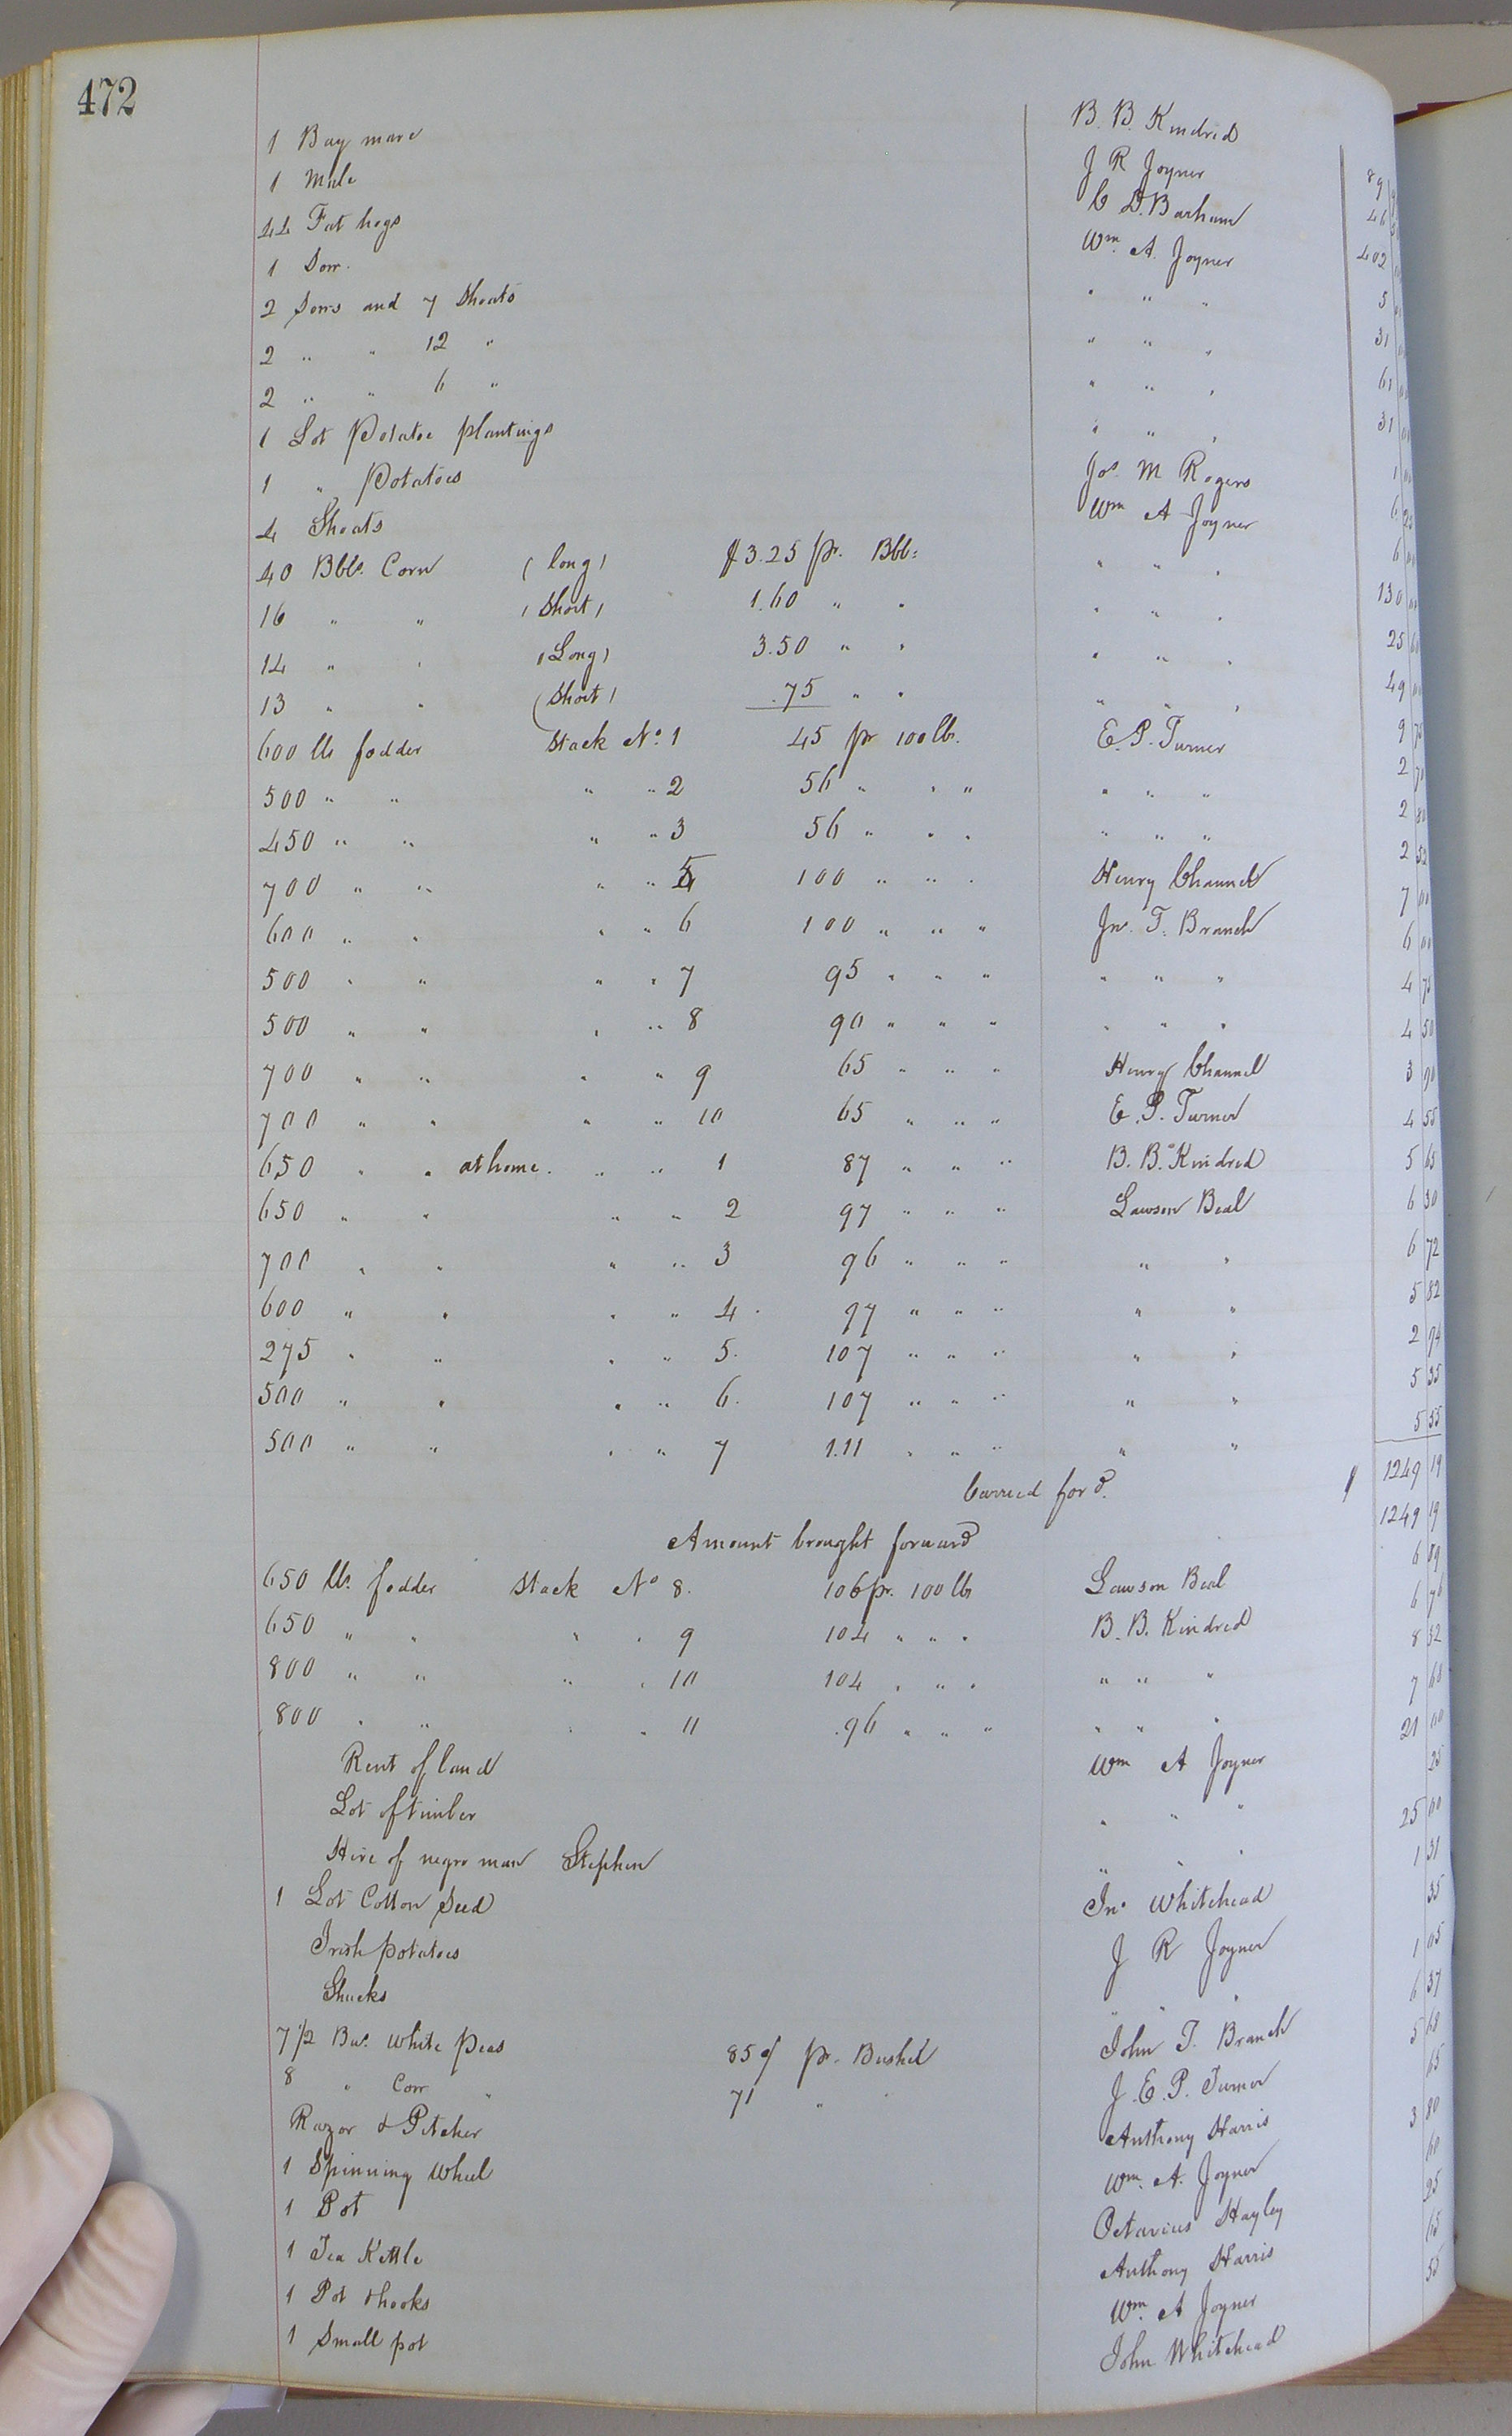 472
1 Bay mare B. B. Kindred
1 Mule J R Joyner 89
44 Fat hogs C D. Barham 46
1 Sow. Wm. A. Joyner 402
2 Sows and 7 Shoats " " " 5
2 " " 12 " " " " 31
2 " " 6 " " " " 61
1 Lot Potatoe plantings " " " 31
1 " Potatoes Jos M Rogers 1
4 Shoats Wm A Joyner 6 25
40 Bbls. Corn (long) $3.25 pr. Bbl: " " " 6
16 " " (Short) 1.60 " " " " " 130
14 " " (Long) 3.50 " " " " " 25 60
13 " " (Short) .75 " " " " " 49
600 lbs fodder Stack No. 1 45 pr 100 lb. E. P. Turner 9 75
500 " " " " 2 56 " " " " " " 2 70
450 " " " " 3 56 " " " " " " 2 80
700 " " " " 5 100 " " " Henry Channel 2 52
600 " " " " 6 100 " " " Jn. T. Branch 7 00
500 " " " " 7 95 " " " " " " 6 00
500 " " " " 8 90 " " " " " " 4 75
700 " " " " 9 65 " " " Henry Channel 4 50
700 " " " " 10 65 " " " E. P. Turner 3 90
650 " " at home. " " 1 87 " " " B. B. Kindred 4 55
650 " " " " 2 97 " " " Lawson Beal 5 65
700 " " " " 3 96 " " " " " 6 30
600 " " " " 4 97 " " " " " 6 72
275 " " " " 5. 107 " " " " " 5 82
500 " " " " 6. 107 " " " " " 2 94
500 " " " " 7 1.11 " " " " " 5 35
5 55
Carried for d. $ 1249 19
Amount brought forward 1249 19
650 lbs. fodder Stack No 8. 106 pr. 100 lb Lawson Beal 6 89
650 " " " " 9 104 " " " B. B. Kindred 6 76
800 " " " " 10 104 " " " " " " 8 32
800 " " " " 11 .96 " " " " " " 7 68
Rent of land Wm A Joyner 21 00
Lot of timber " " " 25
Hire of negro man Stephen " " " 25 00
1 Lot Cotton Seed Jno Whitehead 1 31
Irish potatoes J R Joyner 35
Shucks " " " 1 05
7 1/2 Bus. White Peas 85 c/ pr. Bushel John T. Branch 6 37
8 " Corn " 71 " " J. E. P. Turner 5 68
Razor & Pitcher Anthony Harris 65
1 Spinning Wheel Wm. A. Joyner 3 80
1 Pot Octavius Hayley 60
1 Tea Kettle Anthony Harris 25
1 Pot & hooks Wm A Joyner 65
1 Small pot John Whitehead 55